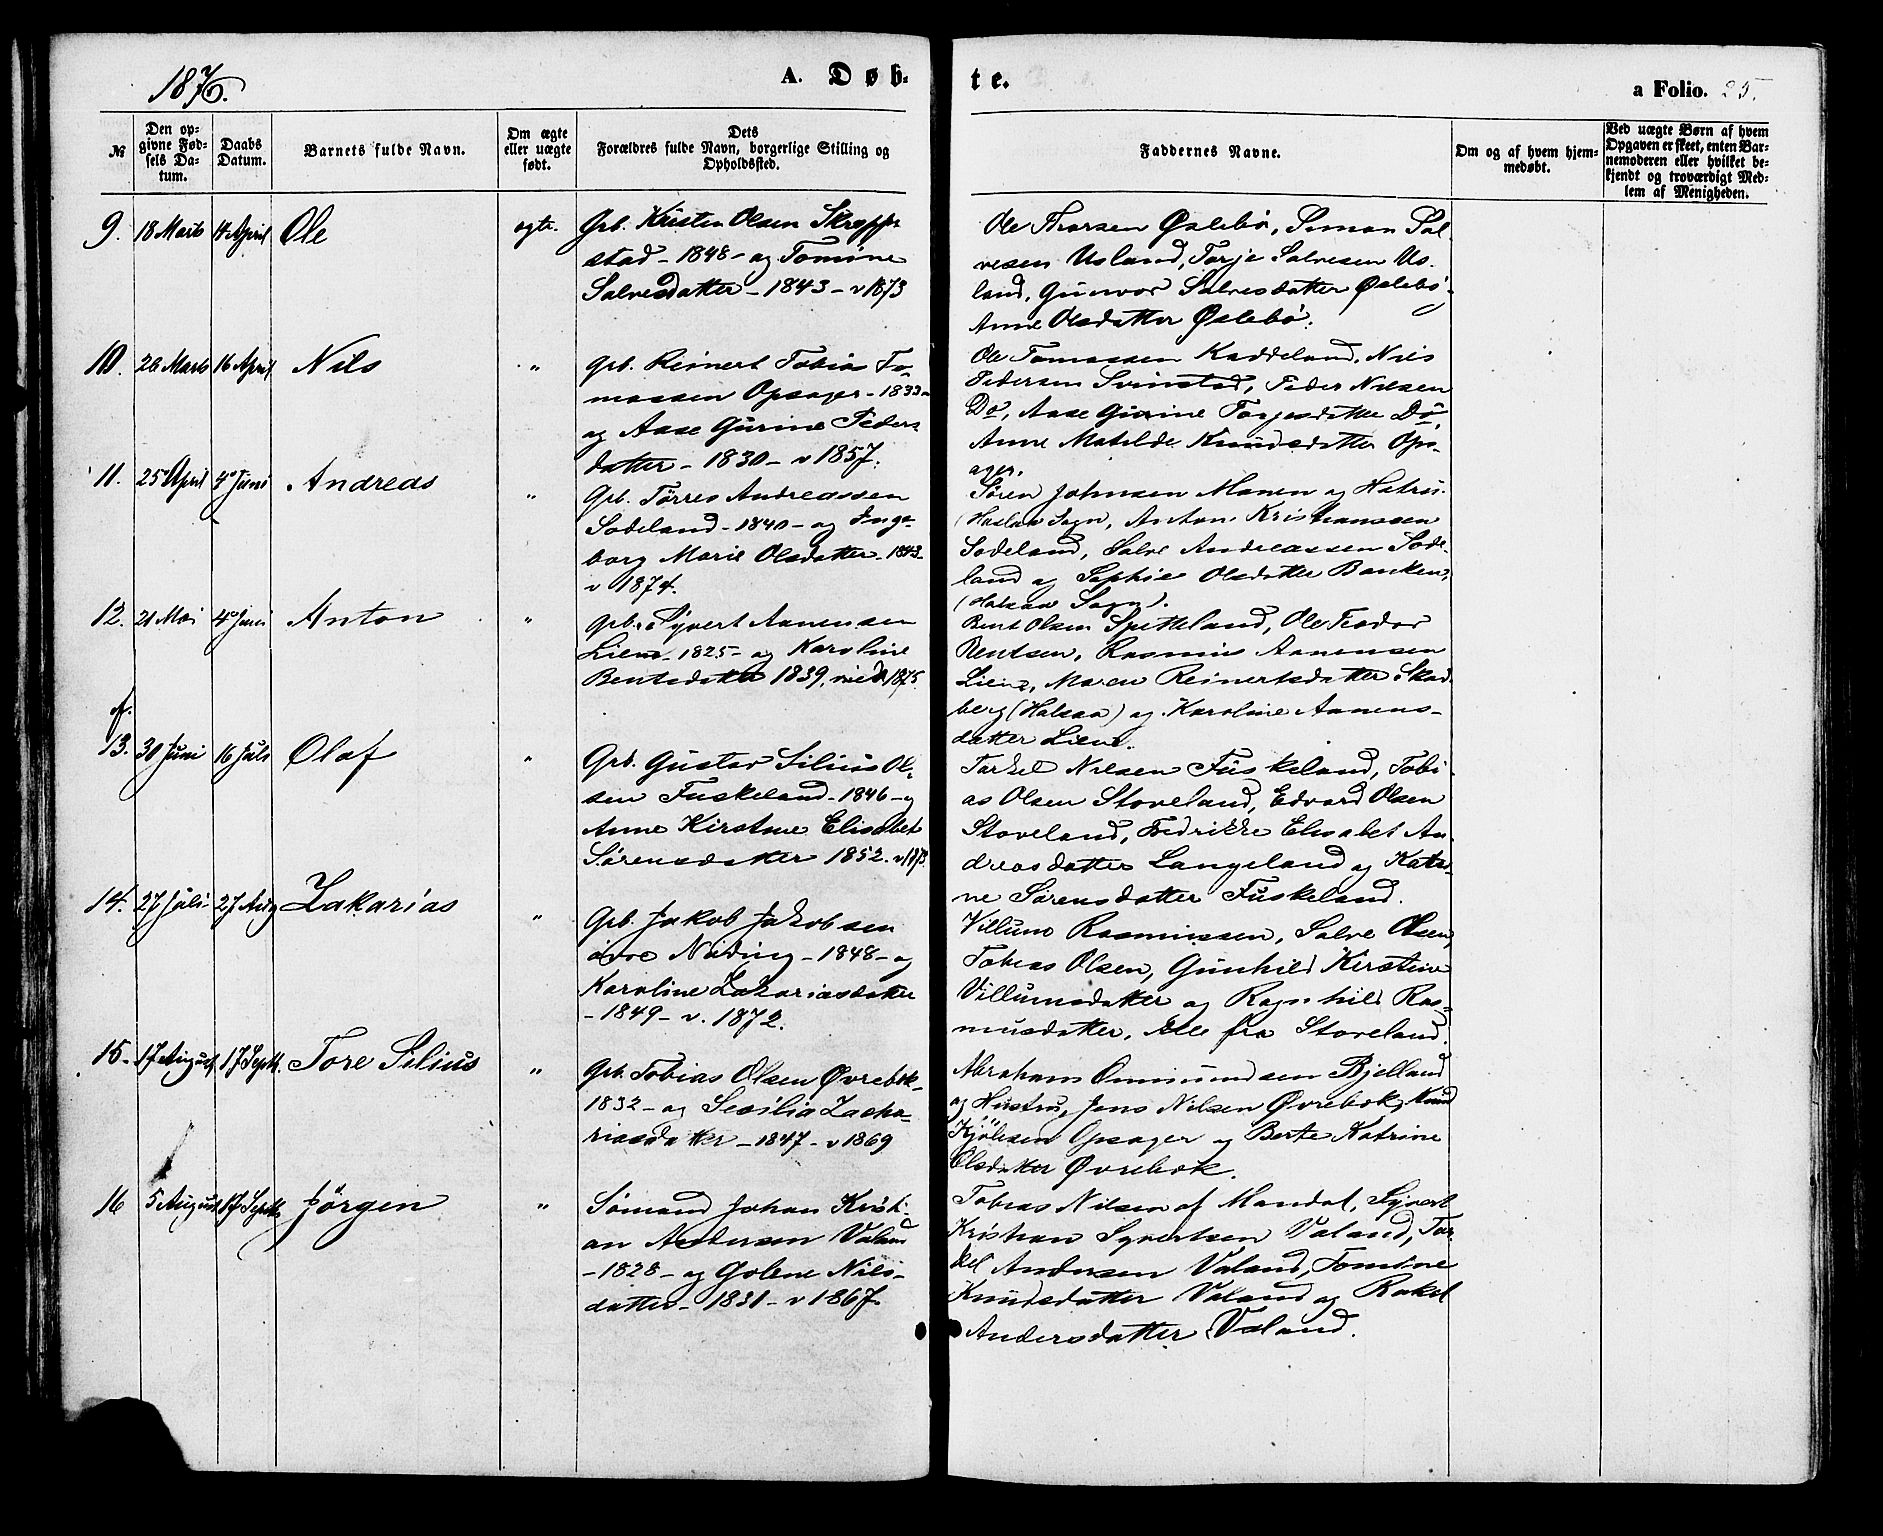 1876.
A. Døb-
te.
a Folio. 25.
№
Den op-
givne Fød-
sels Da-
tum.
Daabs
Datum.
Barnets fulde Navn.
Om ægte
eller uægte
født.
Dets
Forældres fulde Navn, borgerlige Stilling og
Opholdssted.
Faddernes Navne.
Om og af hvem hjem-
medøbt.
Ved uægte Børn af hvem
Opgaven er skeet, enten Bar-
nemoderen eller hvilket be-
kjendt og troværdigt Med-
lem af Menigheden.
9. 18 Marts 17 April Ole ægte. Grb. Kristen Olsen Skrepp-
stad - 1848 - og Tomine
Salvesdatter - 1843 - v 1873
Ole Thorsen Øslebø, Simon Sal-
vesen Usland, Torje Salvesen Us-
land, Gunvor Salvesdatter Øslebø,
Anne Olsdatter Øslebø.
10. 26 Marts 16 April Nils " Grb. Reinert Tobias To-
massen Opsager - 1833 -
og Aase Gurine Peders-
datter - 1830 - v 1857.
Ole Tomassen Kaddeland, Nils
Pedersen Svinstad, Peder Nilsen
Do, Aase Gurine Torjesdatter Do,
Anne Matilde Knudsdatter Ops-
ager.
11. 25 April 4 Juni Andreas " Grb. Tørres Andreassen
Sodeland - 1840 - og Inge-
borg Marie Olsdatter - 1843 -
v 1874.
Søren Johnsen Monen og Hustru
(Halsaa Sogn, Anton Kristianssen
Sodeland, Salve Andreassen Sode-
land og Sophie Olsdatter Banken,
(Halsaa Sogn).
12. 21 Mai 4 Juni Anton " Grb. Syvert Aanensen
Liene - 1825 - og Karoline
Bentsdatter 1839, vied 1875.
Bent Olsen Spitteland, Ole Teodor
Bentsen, Rasmus Aanensen
Liene, Maren Reinertsdatter Skad-
berg (Halsaa) og Karoline Aanens-
datter Liene.
13. 30 Juni 16 Juli Olaf " Grb. Gustav Silius Ol-
sen Fuskeland - 1846 - og
Anne Kirstine Elisabet
Sørensdatter 1852. v 1873.
Torkel Nilsen Fuskeland, Tobi-
as Olsen Stoveland, Edvard Olsen
Stoveland, Fredrikke Elisabet An-
dreasdatter Langeland og Katri-
ne Sørensdatter Fuskeland.
14. 27 Juli 27 Aug Zakarias " Grb. Jakob Jakobsen
øvre Nøding - 1848 - og
Karoline Zakariasdatter
- 1849 - v. 1872.
Villum Rasmussen, Salve Olsen,
Tobias Olsen, Gunhild Kirstine
Villumsdatter og Ragnhild Ras-
musdatter, Alle fra Stoveland.
15. 17 August 17 Septb. Tore Silius " Grb. Tobias Olsen Øvrebok -
1832 - og Sesilia Zacha-
riasdatter - 1847 - v 1869
Abraham Ommundsen Bjelland
og Hustru, Jens Nilsen Øvrebok, Knud
Kjølesen Opsager og Berte Katrine
Olsdatter Øvrebok.
16 5 August 17 Septb. Jörgen " Sømand Johan Kristi-
an Andersen Valand
- 1828 - og Golene Nils-
datter - 1831 - v 1867.
Tobias Nilsen af Mandal, Syvert
Kristian Syvertsen Valand, Tor-
kel Andersen Valand, Tomine
Knudsdatter Valand og Rakel
Andersdatter Valand.